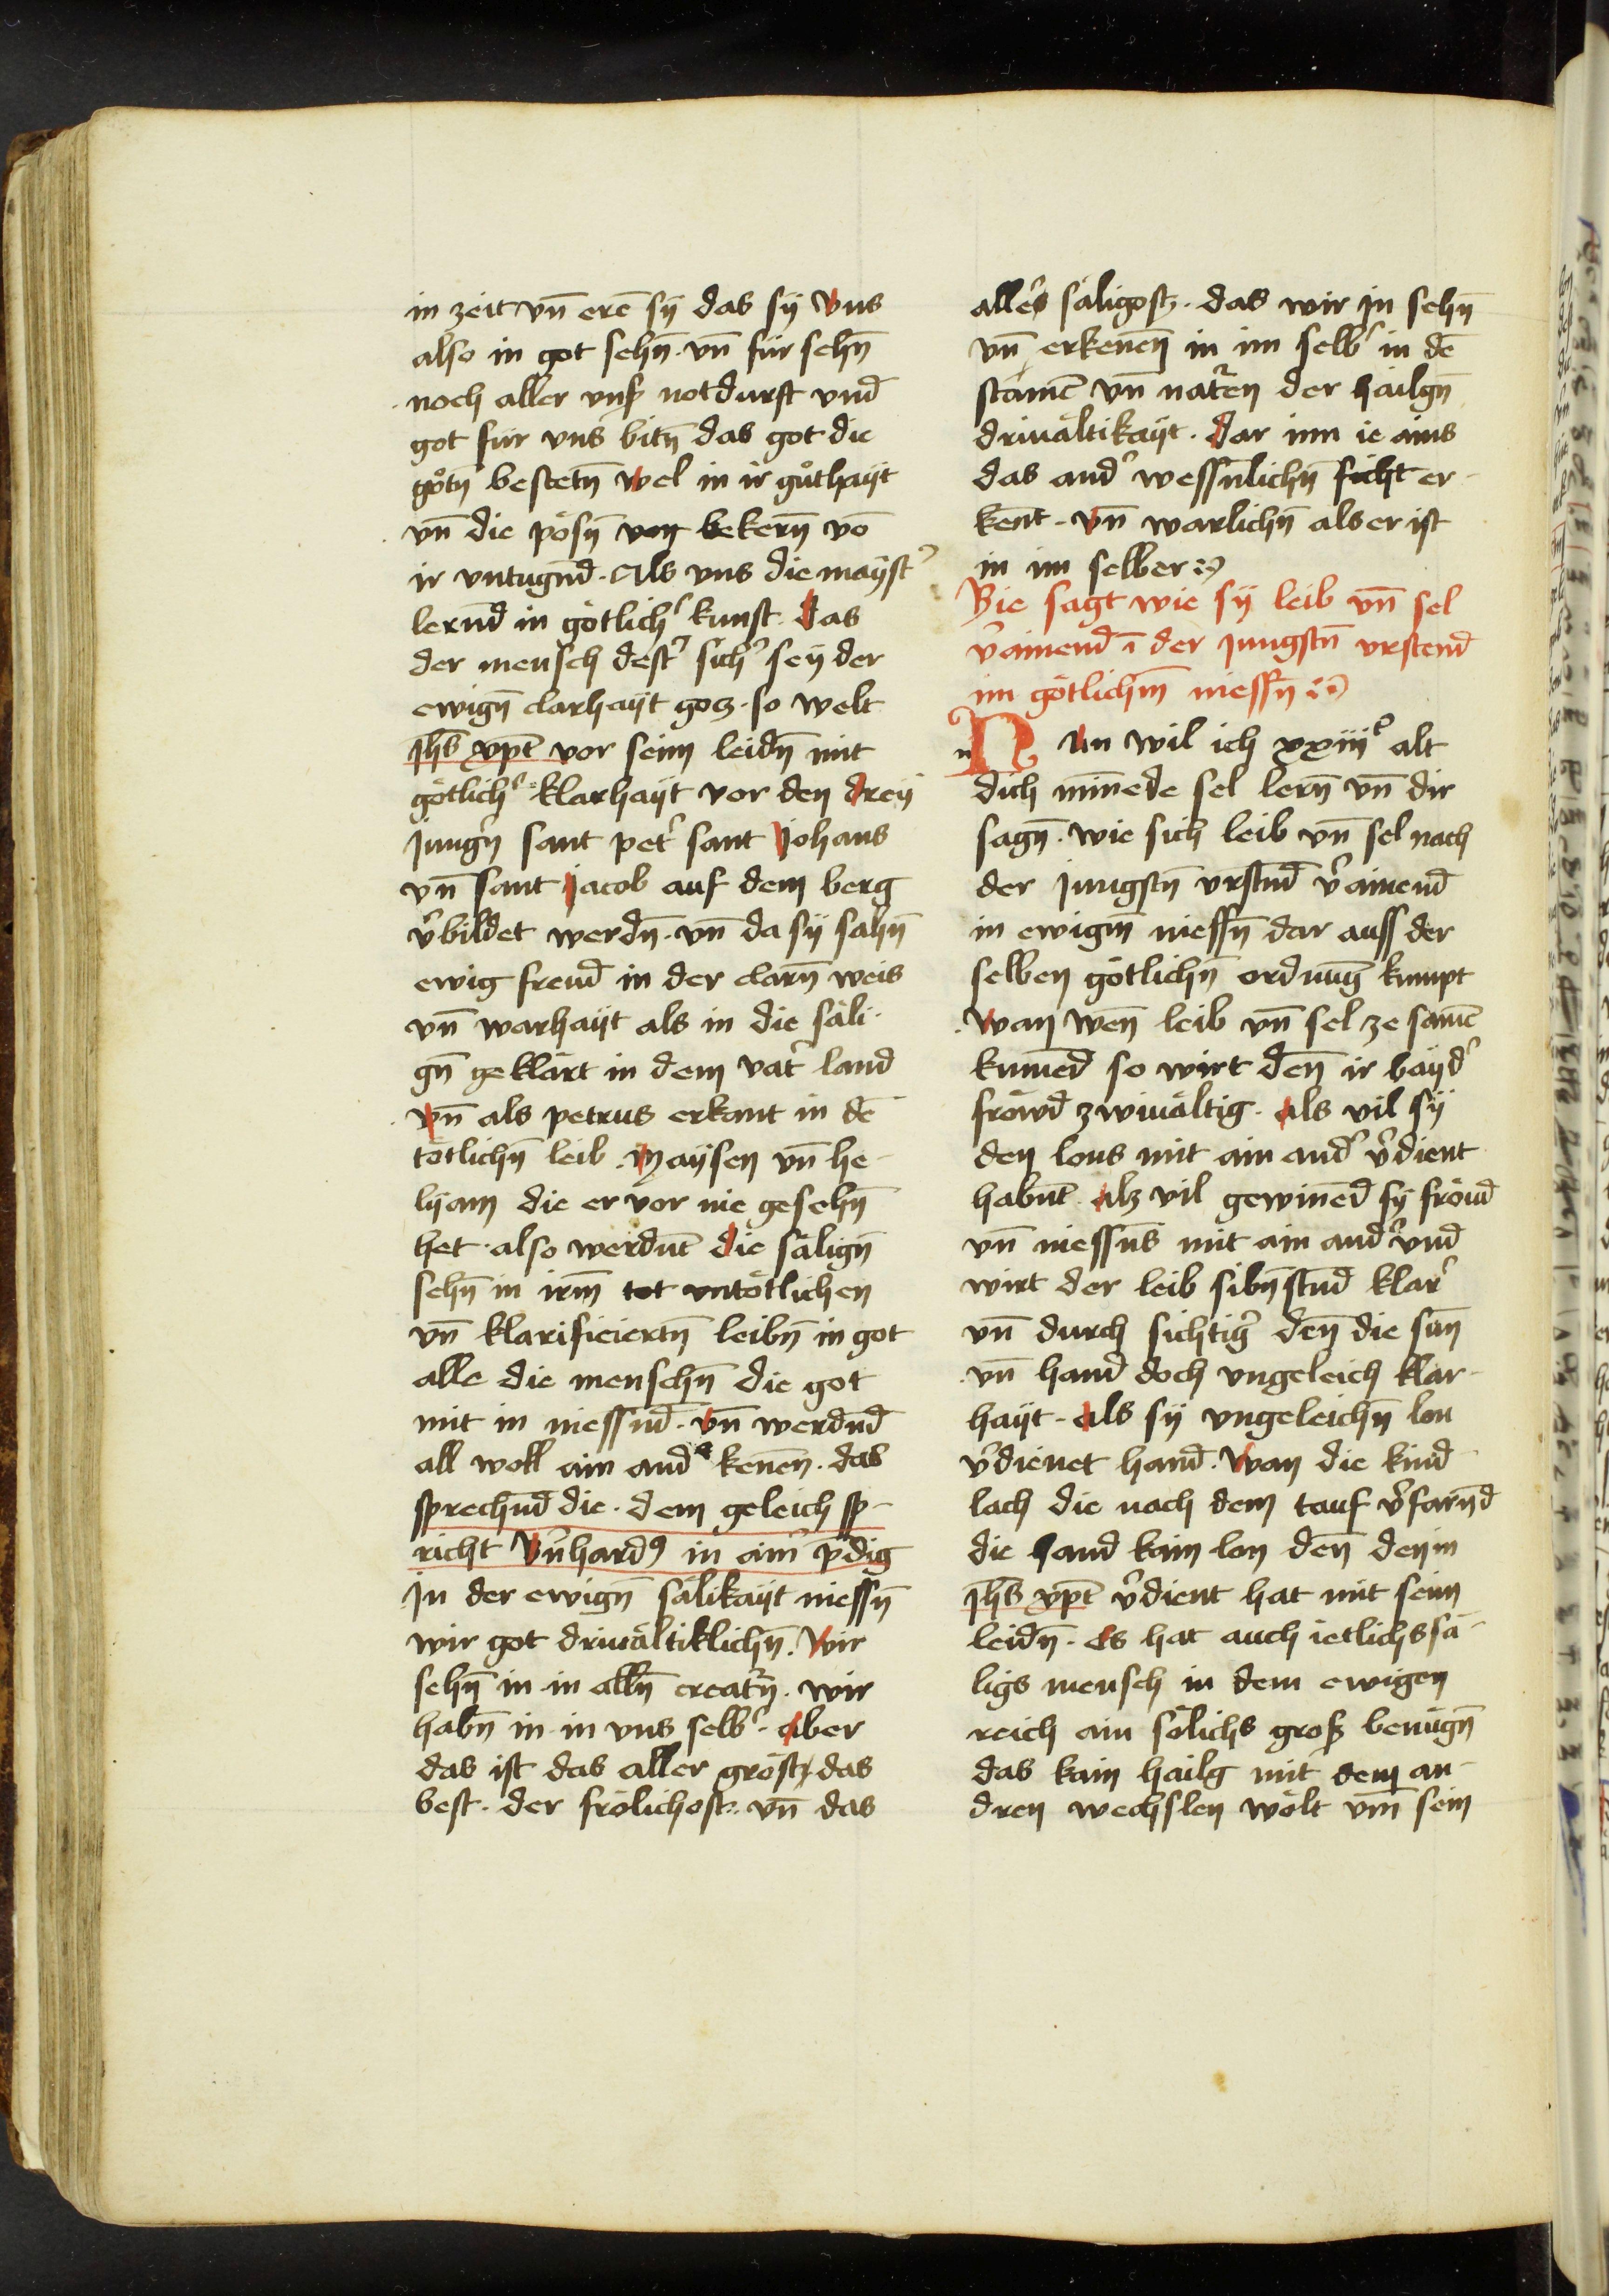 in zeit vn̄ erē sÿ das sÿ vns
also in got sehn̄ · vn̄ für sehn̄
noch aller vnß notdurft vnd̄
got für vns bitn̄ das got die
gůtn̄ bestetn̄ wel in ir gůthaÿt
vn̄ die pösn̄ von bekern̄ vō
ir vntugnd̄ · Als vns die maÿst'
lernd̄ in götlich' kunst · das
der mensch dest' sich' seÿ der
ewign̄ clarhaÿt gotz · so welt
Jhs̄ xpt̄ vor seim leidn̄ mit
götlich' klarhaÿt vor den dreÿ
Jung'n sant pet' sant Johans
vn̄ sant Jacob auf dem berg
v'bildet werdn̄ · vn̄ da sÿ sahn̄
ewig freud̄ in der clarn̄ weis
vn̄ warhaÿt als in die säli·
gn̄ geklärt in dem vat' land
vn̄ als petrus erkant in dē
tötlichn̄ leib · Maÿsen vn̄ he-
lÿam die er vor nie gesehn̄
het · also werdnt̄ die säligñ
sehn̄ in irm̄ tot vntötlichen
vn̄ klarificiertn̄ leibn̄ in got
alle die menschn̄ die got
mit in niessnd̄ · vn̄ werdnd̄
all woll ain and' kenēn · das
sprechnd̄ die · dem geleich sp-
richt Bn̄hard9 in aim' p̄dig
In der ewign̄ sälikaÿt niessn̄
wir got driuältiklichn̄ · Wir
sehn̄ in in alln̄ creat'n̄ · wir
habn̄ in in vns selb' · aber
das ist das aller gröstz das
best · der frölichost · vn̄ das
alle's säligostz · das wir jn sehn̄
vn̄ erkenēn in im selb' in dē
stamē vn̄ natren der hailgn̄
driuältikaÿt · dar inn ie ains
das and' wessnlichn̄ sicht er-
kent · vn̄ warlichn̄ als er ist
in im selber
Hie sagt wie sÿ leib vn̄ sel
v'ainend̄ ī der jungstn̄ vrstend̄
im götlichm̄ niessn̄
n Nun wil ich xxiiijᵒ alt
dich min̄ede sel lern̄ vn̄ dir
sagn̄ · wie sich leib vn̄ sel nach
der jungstn̄ vrstnd̄ v'ainend̄
in ewigm̄ niessn̄ dar auss der
selben götlichn̄ ordnung kumpt
Wan wen̄ leib vn̄ sel ze samē
kumed̄ so wirt den̄ ir baÿd'
fröwd̄ zwiuältig · als vil sÿ
den lons mit ain and' v'dient
habnt̄ · alz vil gewined̄ sÿ fröud̄
vn̄ niessns̄ mit ain and' vnd̄
wirt der leib sibn̄stnd̄ klar'
vn̄ durch sichtig' den̄ die sun̄
vn̄ hand̄ doch vngeleich klar-
haÿt · als sÿ vngeleichn̄ lon
v'dienet hand̄ · Wan die kind
lach die nach dem tauf v'farn̄d
die hand kain lon den̄ den in
Jhs̄ xpt̄ v'dient hat mit seim
leidn̄ · es hat auch ietlichs sä-
ligs mensch in dem ewigen
reich ain sölichs groß benügn̄
das kain hailg mit dem an-
dren wechslen wölt vm̄ sein